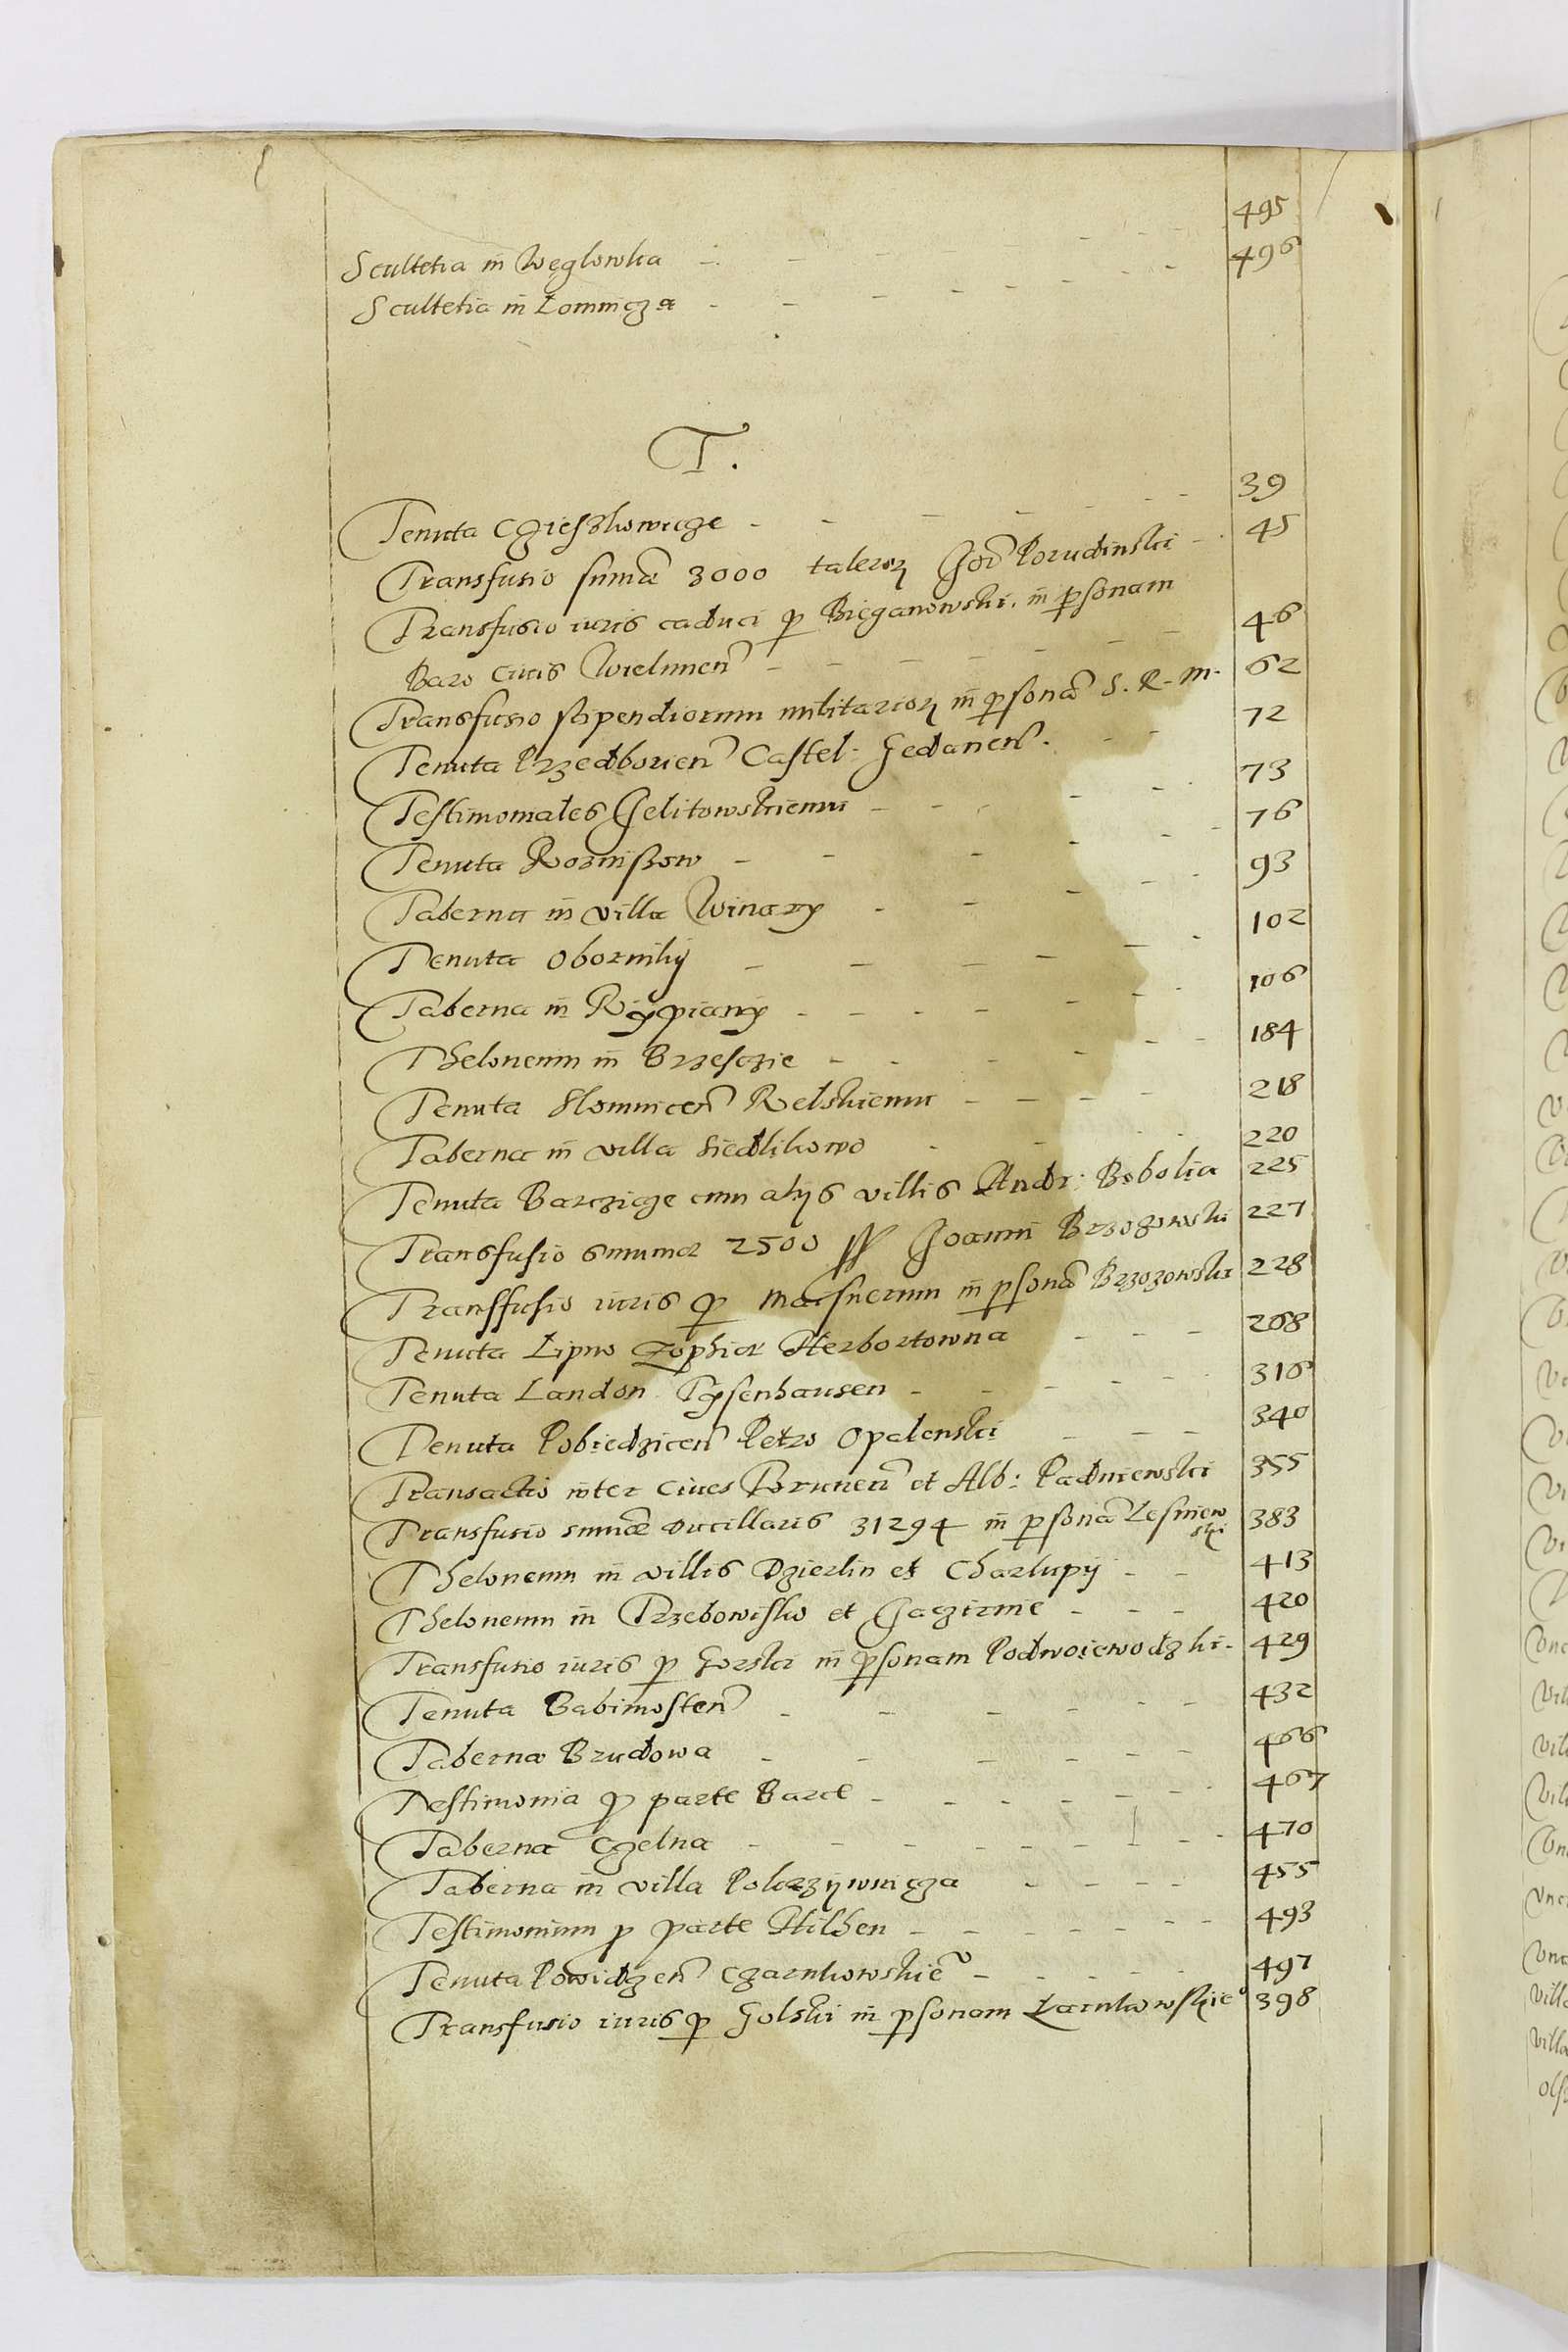 Scultetia in Węglowka - - - - - - 495
Scultetia in Łomnicza - - - - - - 496
T.
Tenuta Czieszkowicze - - - - - 39
Transfusio sumæ 3000 taleror Joī Porudinski - 45
Transfusio iuris caduci p Bieganowski in psonam
Baro civis Wielunen - - - - - 46
Transfusio stipendiorum militarior in psonā S. R. M. 62
Tenuta Przedborien Castel. Gedanen. - - 72
Testimoniales Jelitowskiemu - - - - 73
Tenuta Rozniszow - - - - - 76
Taberna in villa Winary - - - - - 93
Tenuta Oborniky - - - - - - 102
Taberna in Rÿpianÿ - - - - - - 106
Theloneum in Brzesczie - - - - - - 184
Tenuta Slomnicen Relskiemu - - - - 218
Taberna in villa Siedlikowo - - - - 220
Tenuta Barczicze cum alijs villis Andr: Bobolia 225
Transfusio summæ 2500 ff Joanni Brzozowski 227
Transffusio iuris p Maisnerum in psonā Brzozowski 228
Tenuta Lipno Zophiæ Herbortowna - - - 268
Tenuta Landon Tÿsenhausen - - - - - 316
Tenuta Pobiedzicen Petro Opalenski - - - 340
Transactio inter Cives Torunen et Alb: Padniewski 355
Transfusio sumæ ducillaris 31294 in psonā Lesniew
ski 383
Theloneum in villis Dzierlin et Charlupij - - 413
Theloneum in Przebowisko et Jaczimie - - - 420
Transfusio iuris p Gorski in psonam Podwoiewodzki - 429
Tenuta Babimosten - - - - - 432
Taberna Brudowa - - - - - - 466
Testimonia p parte Barcl - - - - - - 467
Taberna Czelna - - - - - - - 470
Taberna in villa Pokrzywnicza - - - - 455
Testimonium p parte Hilchen - - - - - - 493
Tenuta Powidzen Czarnkowskie° - - - - - 497
Transfusio iuris p Golski in psonam Łarnkowskie° 398